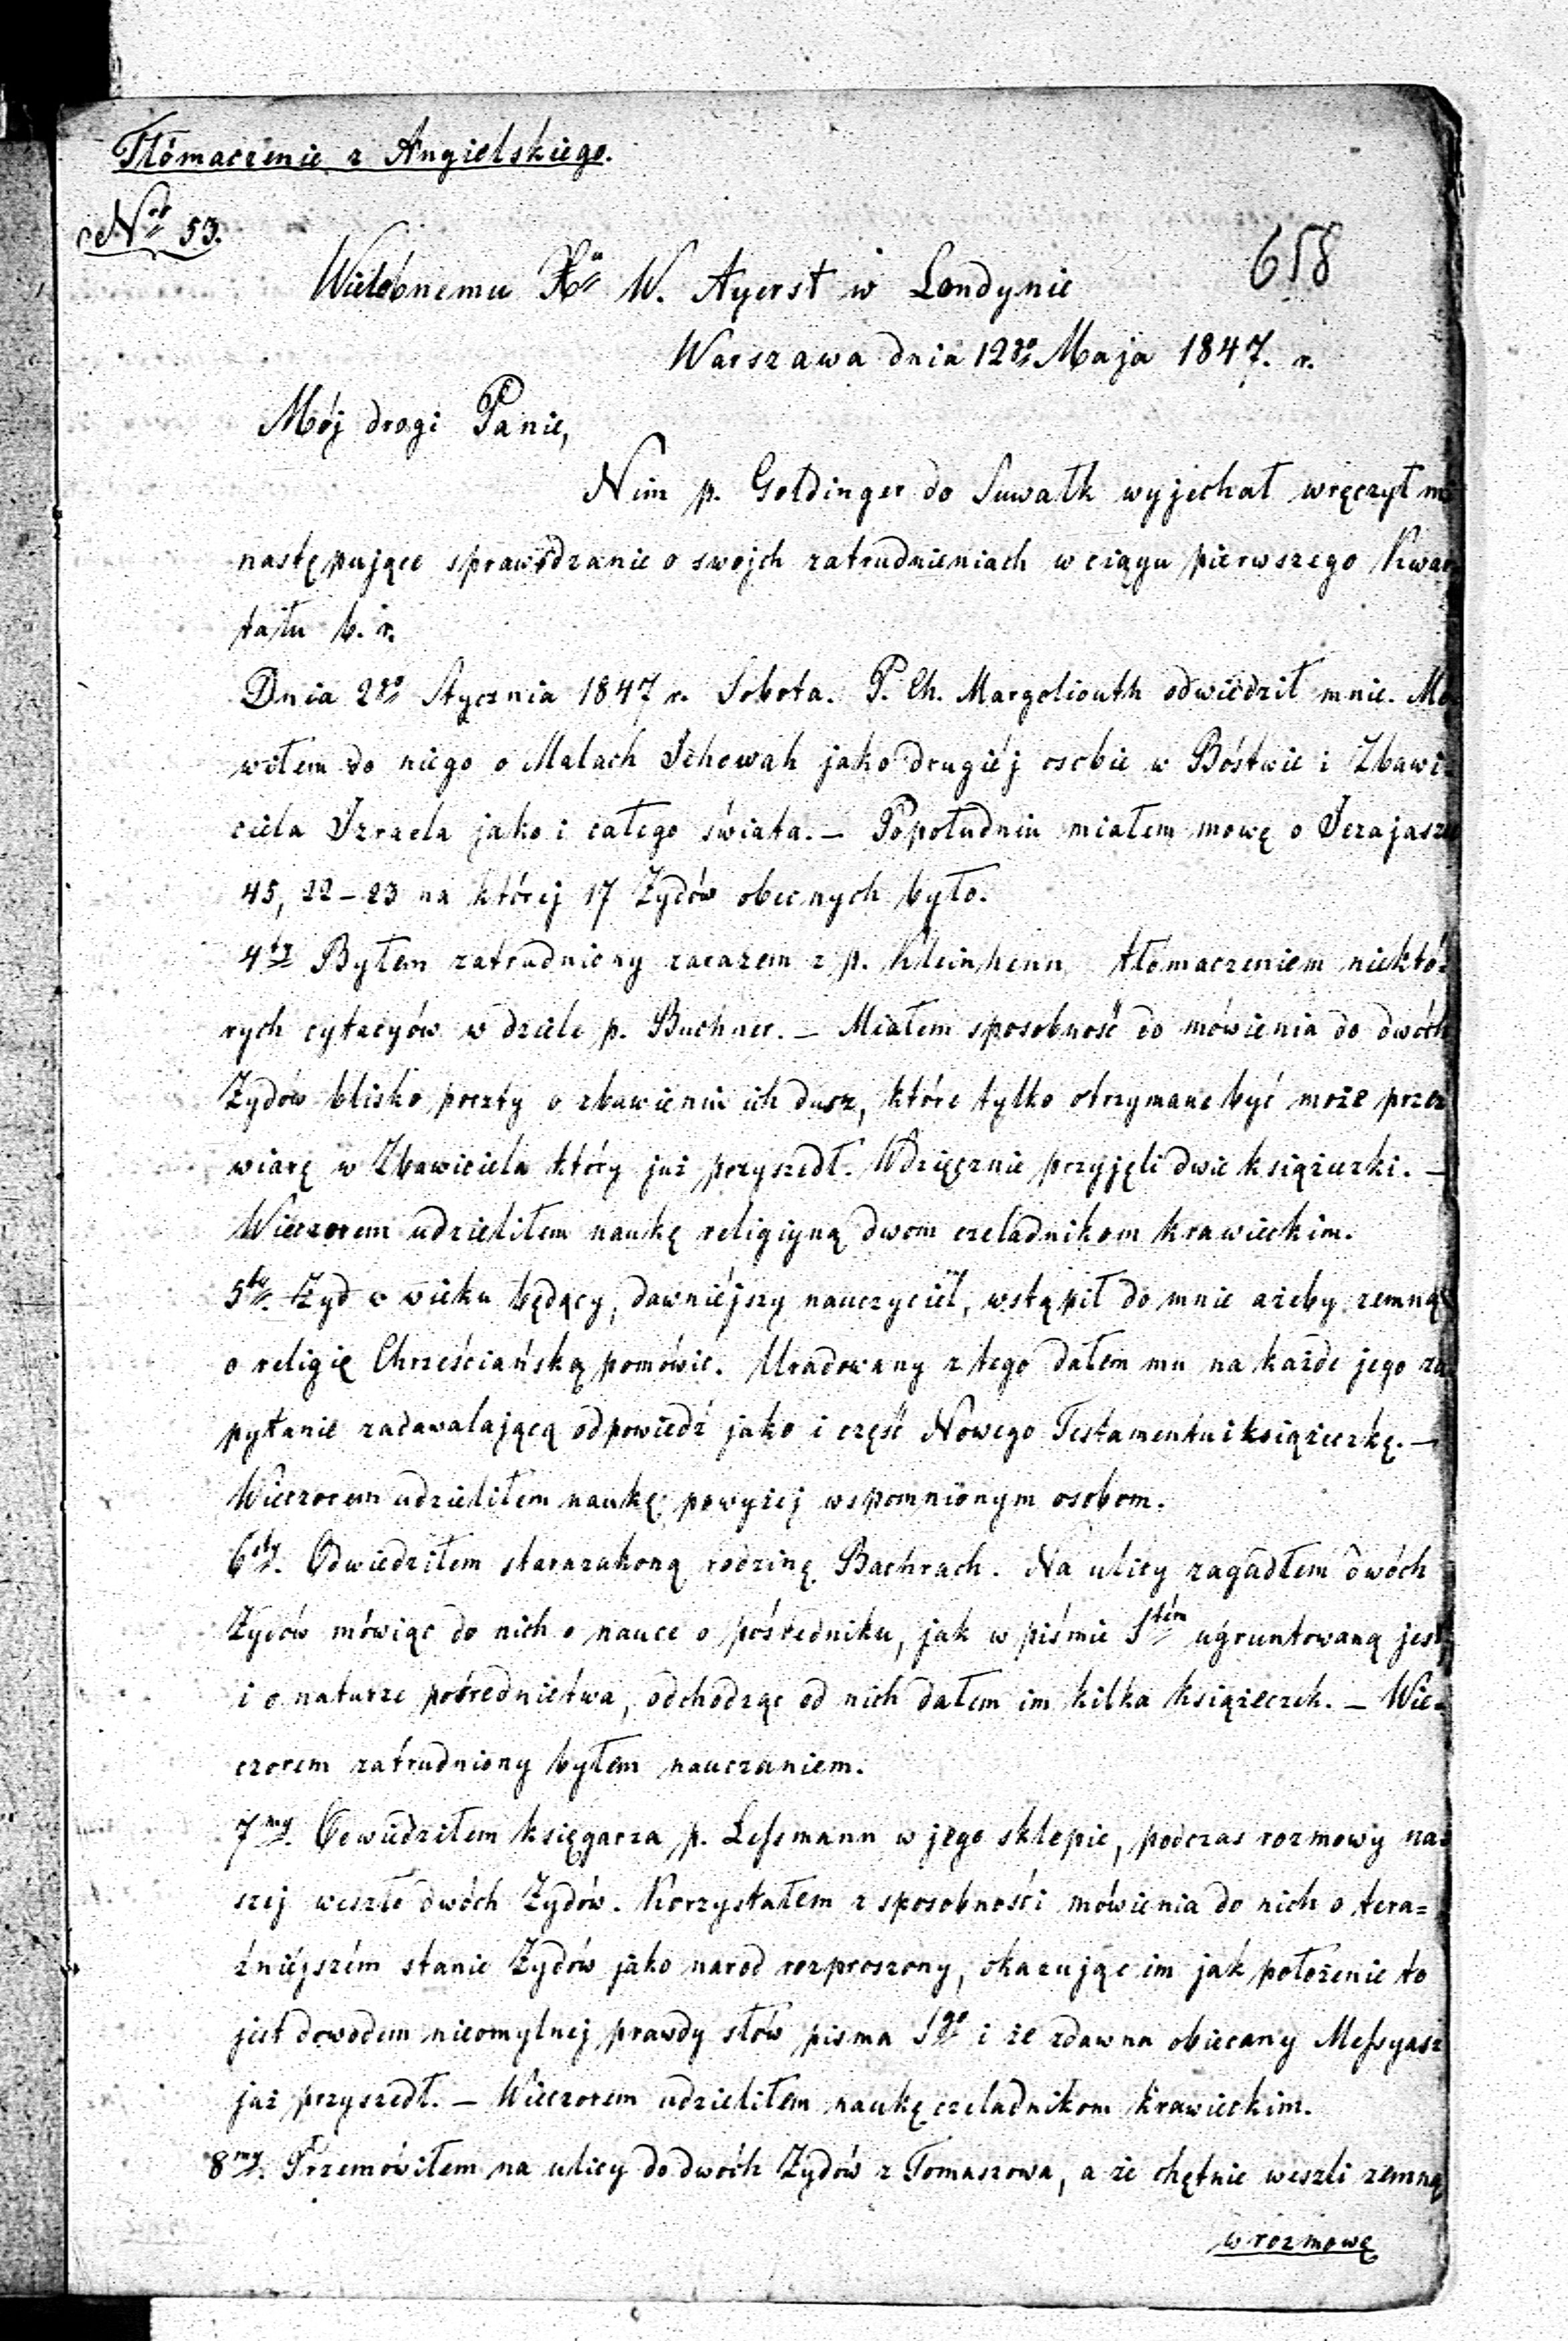 Tłómaczenie z Angielskiego.
Nro 53.
658
Wielebnemu Xu W. Ayerst w Londynie
Warszawa dnia 12go Maja 1847. r.
Mój drogi Panie,
Nim p. Goldinger do Suwałk wyjechał wręczył mi
następujące sprawozdzanie o swojch zatrudnieniach w ciągu pierwszego Kwar
tału b. r.
Dnia 2go Stycznia 1847 r. Sobota. P. Ch. Margoliouth odwiedził mnie. Mó
wiłem do niego o Malach Jehowah jako drugiéj osobie w Bóstwie i Zbawi=
ciela Izraela jako i całego świata. — Popołudniu miałem mowę o Jezajaszu
45, 22–23 na której 17 Żydów obecnych było.
4ty Byłem zatrudniony zarazem z p. Kleinhenn tłómaczeniem niektó=
rych cytacyów w dziele p. Buchner. — Miałem sposobność do mówienia do dwóch
Żydów blisko poczty o zbawieniu ich dusz, które tylko otrzymane być może przez
wiarę w Zbawiciela który już przyszedł. Wdzięcznie przyjęli dwie książeczki. —
Wieczorem udzieliłem naukę religiyną dwom czeladnikom krawieckim.
5ty. Żyd w wieku będący, dawniéjszy nauczyciel, wstąpił do mnie ażeby zemną
o religię Chrześciańską pomówić. Uradowany z tego dałem mu na każde jego za
pytanie zadawalającą odpowiedź jako i część Nowego Testamentu i książeczkę. —
Wieczorem udzieliłem naukę powyżej wspomnionym osobom.
6sty. Odwiedziłem starozakoną rodzinę Bachrach. Na ulicy zagadłem dwóch
Żydów mówiąc do nich o nauce o pośredniku, jak w piśmie Stém ugruntowaną jest,
i o naturze pośrednictwa, odchodząc od nich dałem im kilka książeczek. — Wie=
czorem zatrudniony byłem nauczaniem.
7my. Odwiedziłem księgarza p. Lessmann w jego sklepie, podczas rozmowy na=
szej weszło dwóch Żydów. Korzystałem z sposobności mówienia do nich o tera=
źniéjszém stanie Żydów jako narod rozproszony, okazując im jak położenie to
jest dowodem nieomylnej prawdy słów pisma Sgo i że zdawna obiecany Messyasz
już przyszedł. — Wieczorem udzieliłem naukę czeladnikom krawieckim.
8my. Przemówiłem na ulicy do dwóch Żydów z Tomaszowa, a że chętnie weszli zemną
w rozmowę